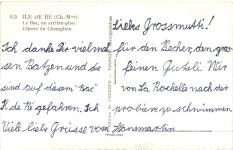 858 ILE DE RÉ (Ch.-Mme)
Le Bac, en arrière-plan:
l'épave du Champlain
Liebes Grossmutti!
Ich danke Dir vielmal für den Becher, den gros-
sen Batzen und die feinen Gutzli. Wir
sind auf dem Bac von La Rochelle nach der
de Ré gefahren. Ich probiere zu schwimmen.
Viele liebe Grüsse vom Hansmartin